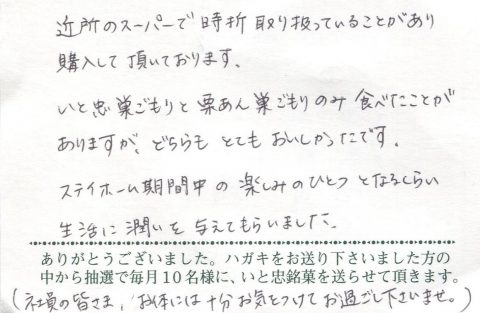 近所のスーパーで時折取り扱っていることがあり
購入して頂いております。
いと忠巣ごもりと栗あん巣ごもりのみ食べたことが
ありますが、どちらもとてもおいしかったです。
ステイホーム期間中の楽しみのひとつとなるくらい
生活に潤いを与えてもらいました。
ありがとうございました。ハガキをお送り下さいました方の
中から抽選で毎月10名様に、いと忠銘菓を送らせて頂きます。
(社員の皆さま、お体には十分お気をつけてお過ごし下さいませ。)